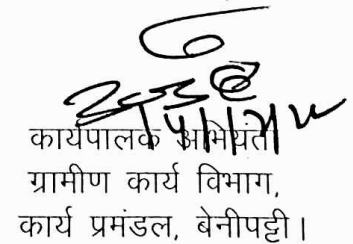 कार्यपालक अभियंता
ग्रामीण कार्य विभाग,
कार्य प्रमंडल, बेनीपट्टी।